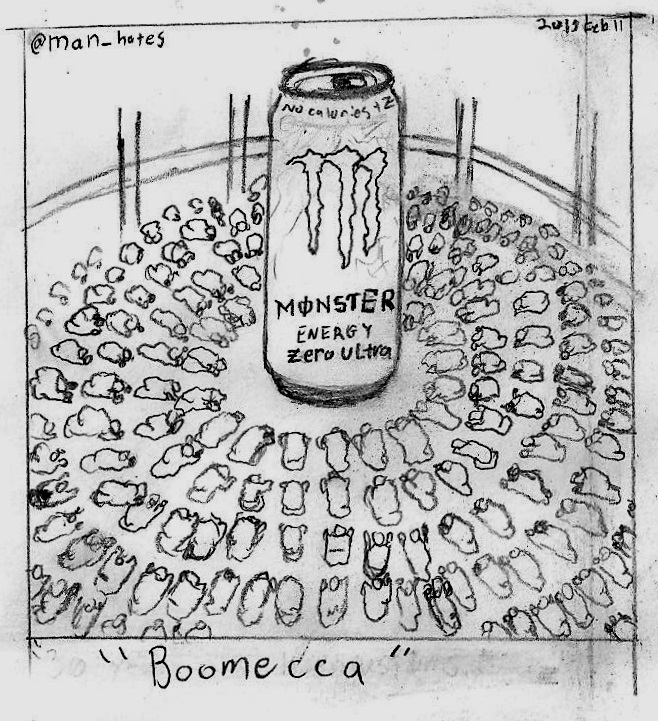 @man_hates
No calories + Z
MØNSTER
ENERGY
Zero Ultra
"Boomecca"